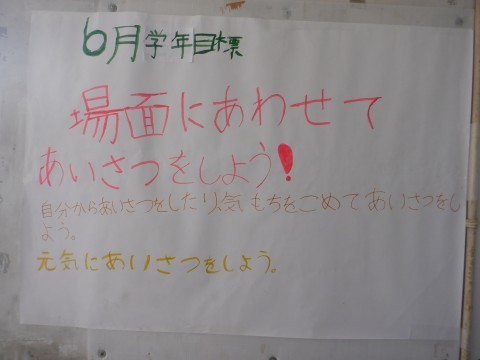 6月学年目標
場面にあわせて
あいさつをしよう!
自分からあいさつをしたり、気もちをこめてあいさつをし
よう。
元気にあいさつをしよう。